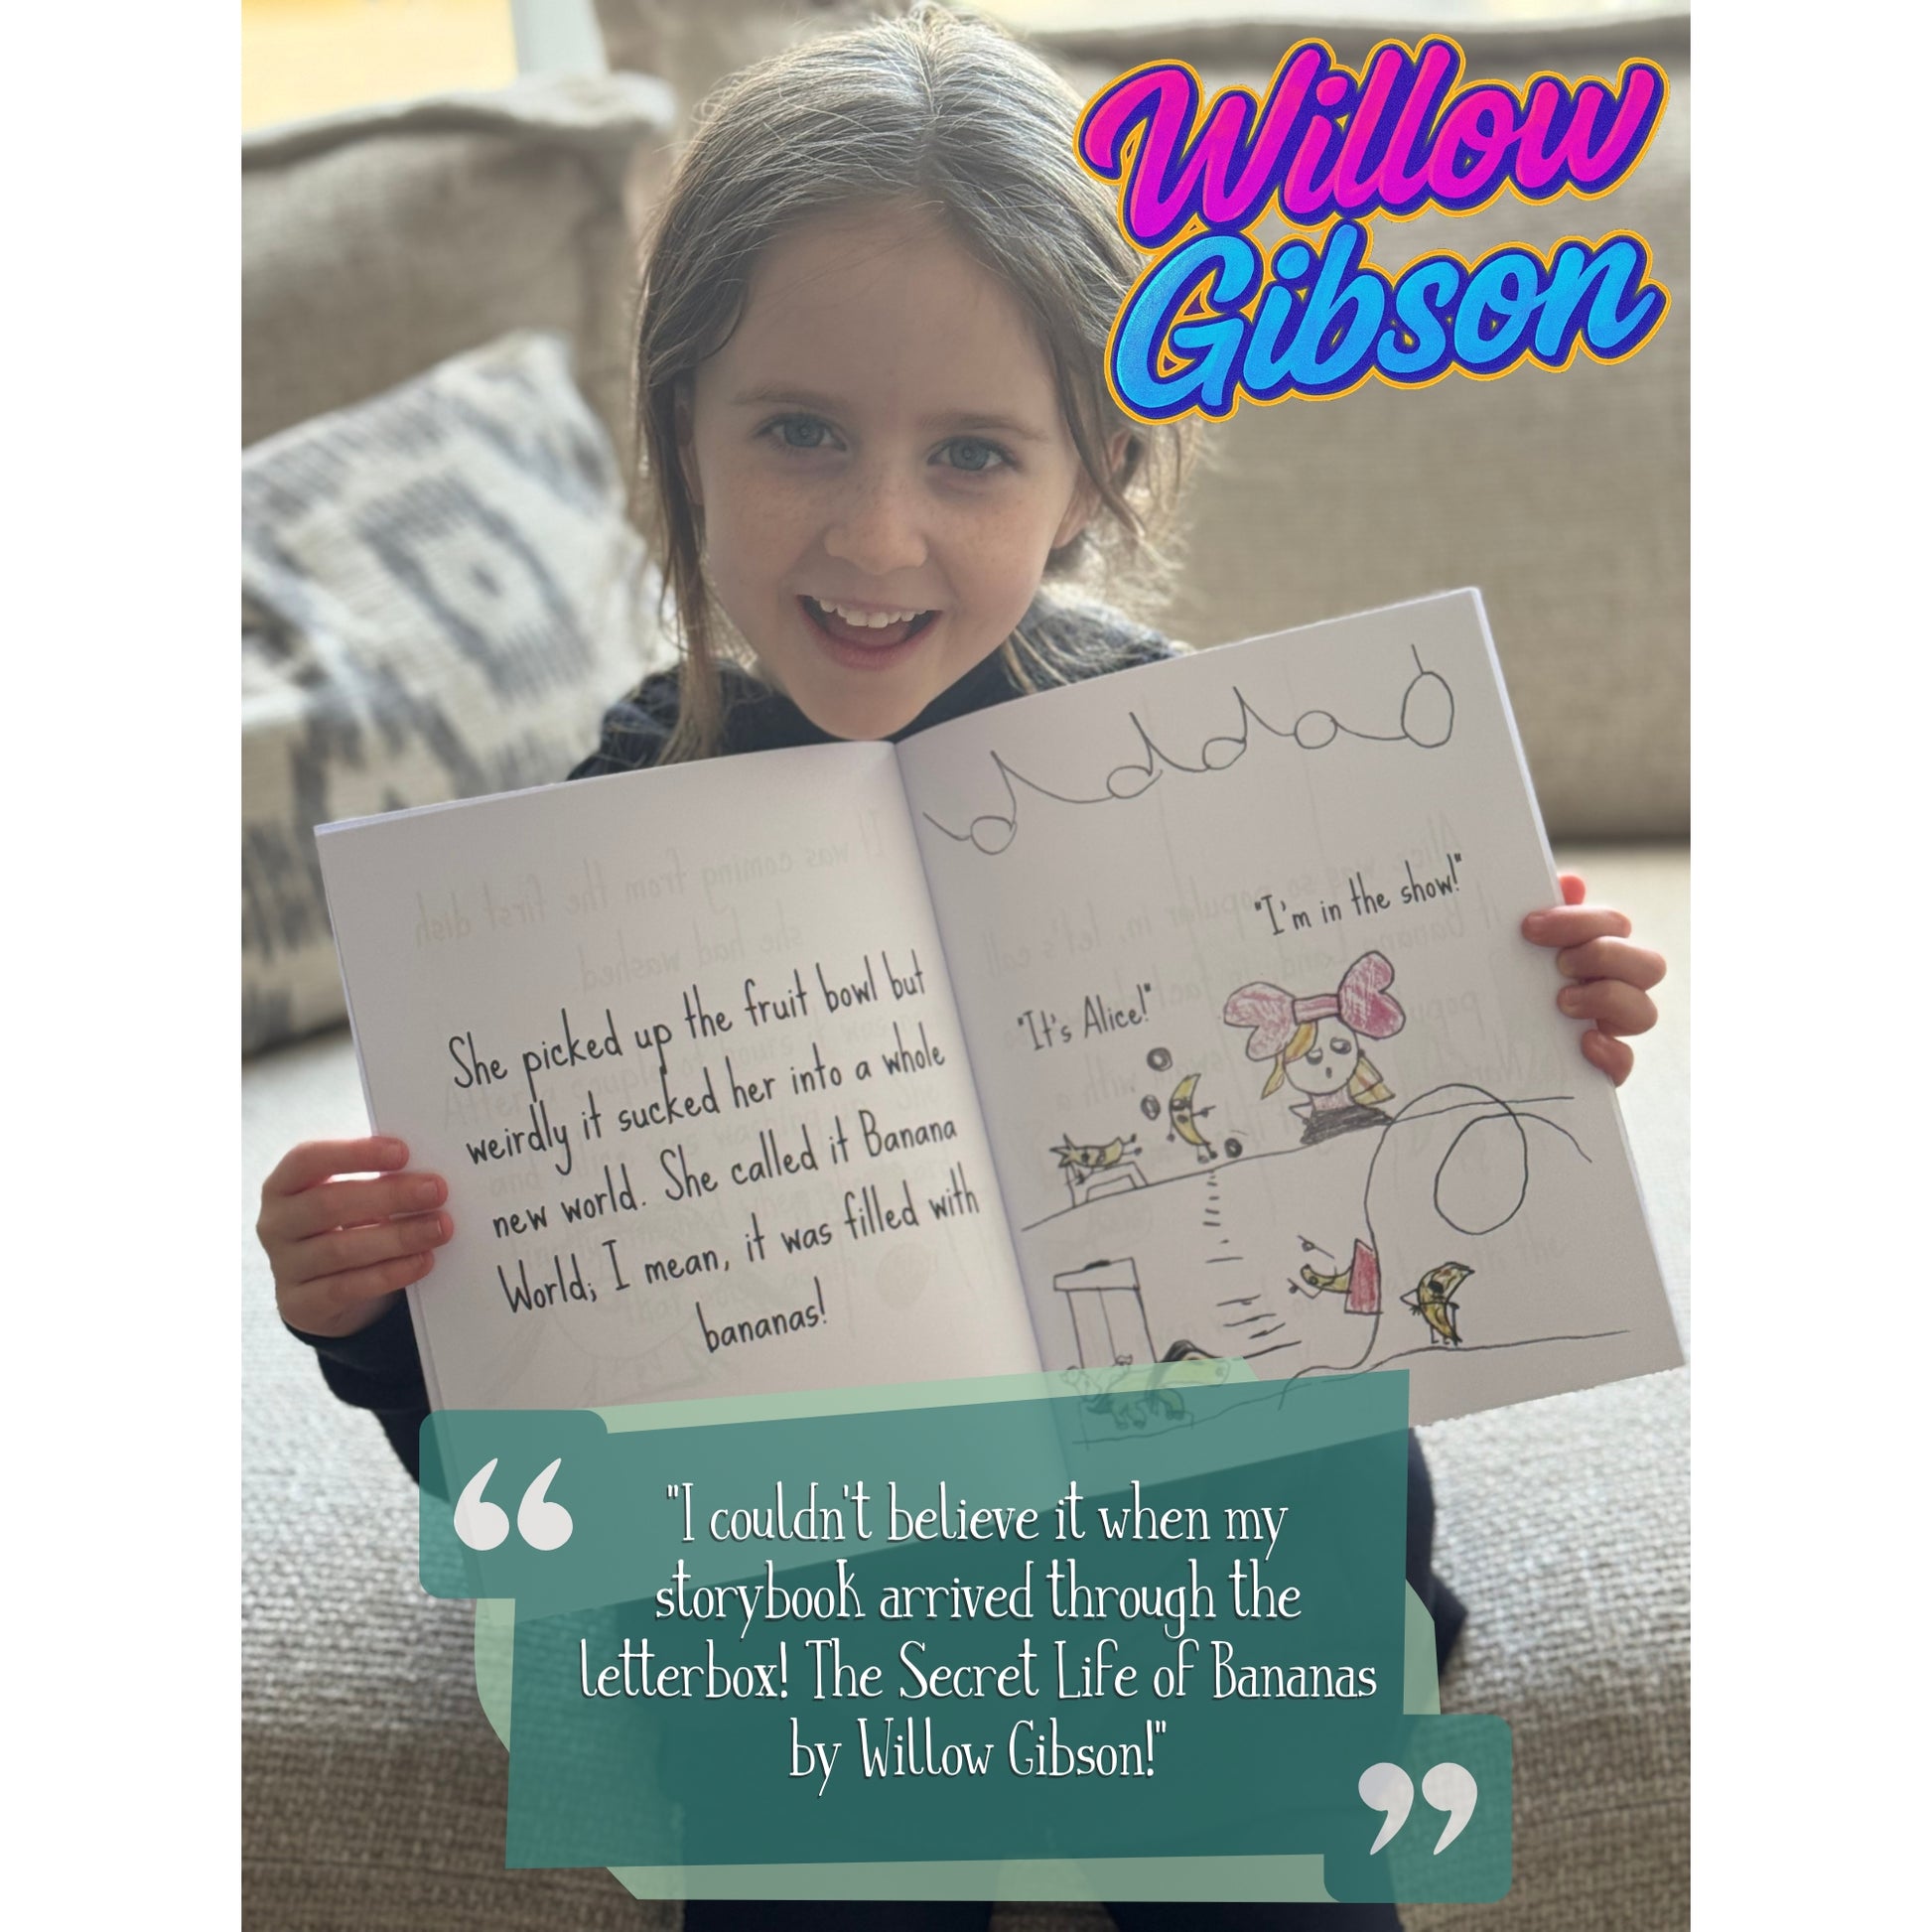 Willow
Gibson
She picked up the fruit bowl but
weirdly it sucked her into a whole
new world. She called it Banana
World; I mean, it was filled with
bananas!
"I'm in the show!"
"It's Alice!"
"I couldn't believe it when my
storybook arrived through the
letterbox! The Secret Life of Bananas
by Willow Gibson!"